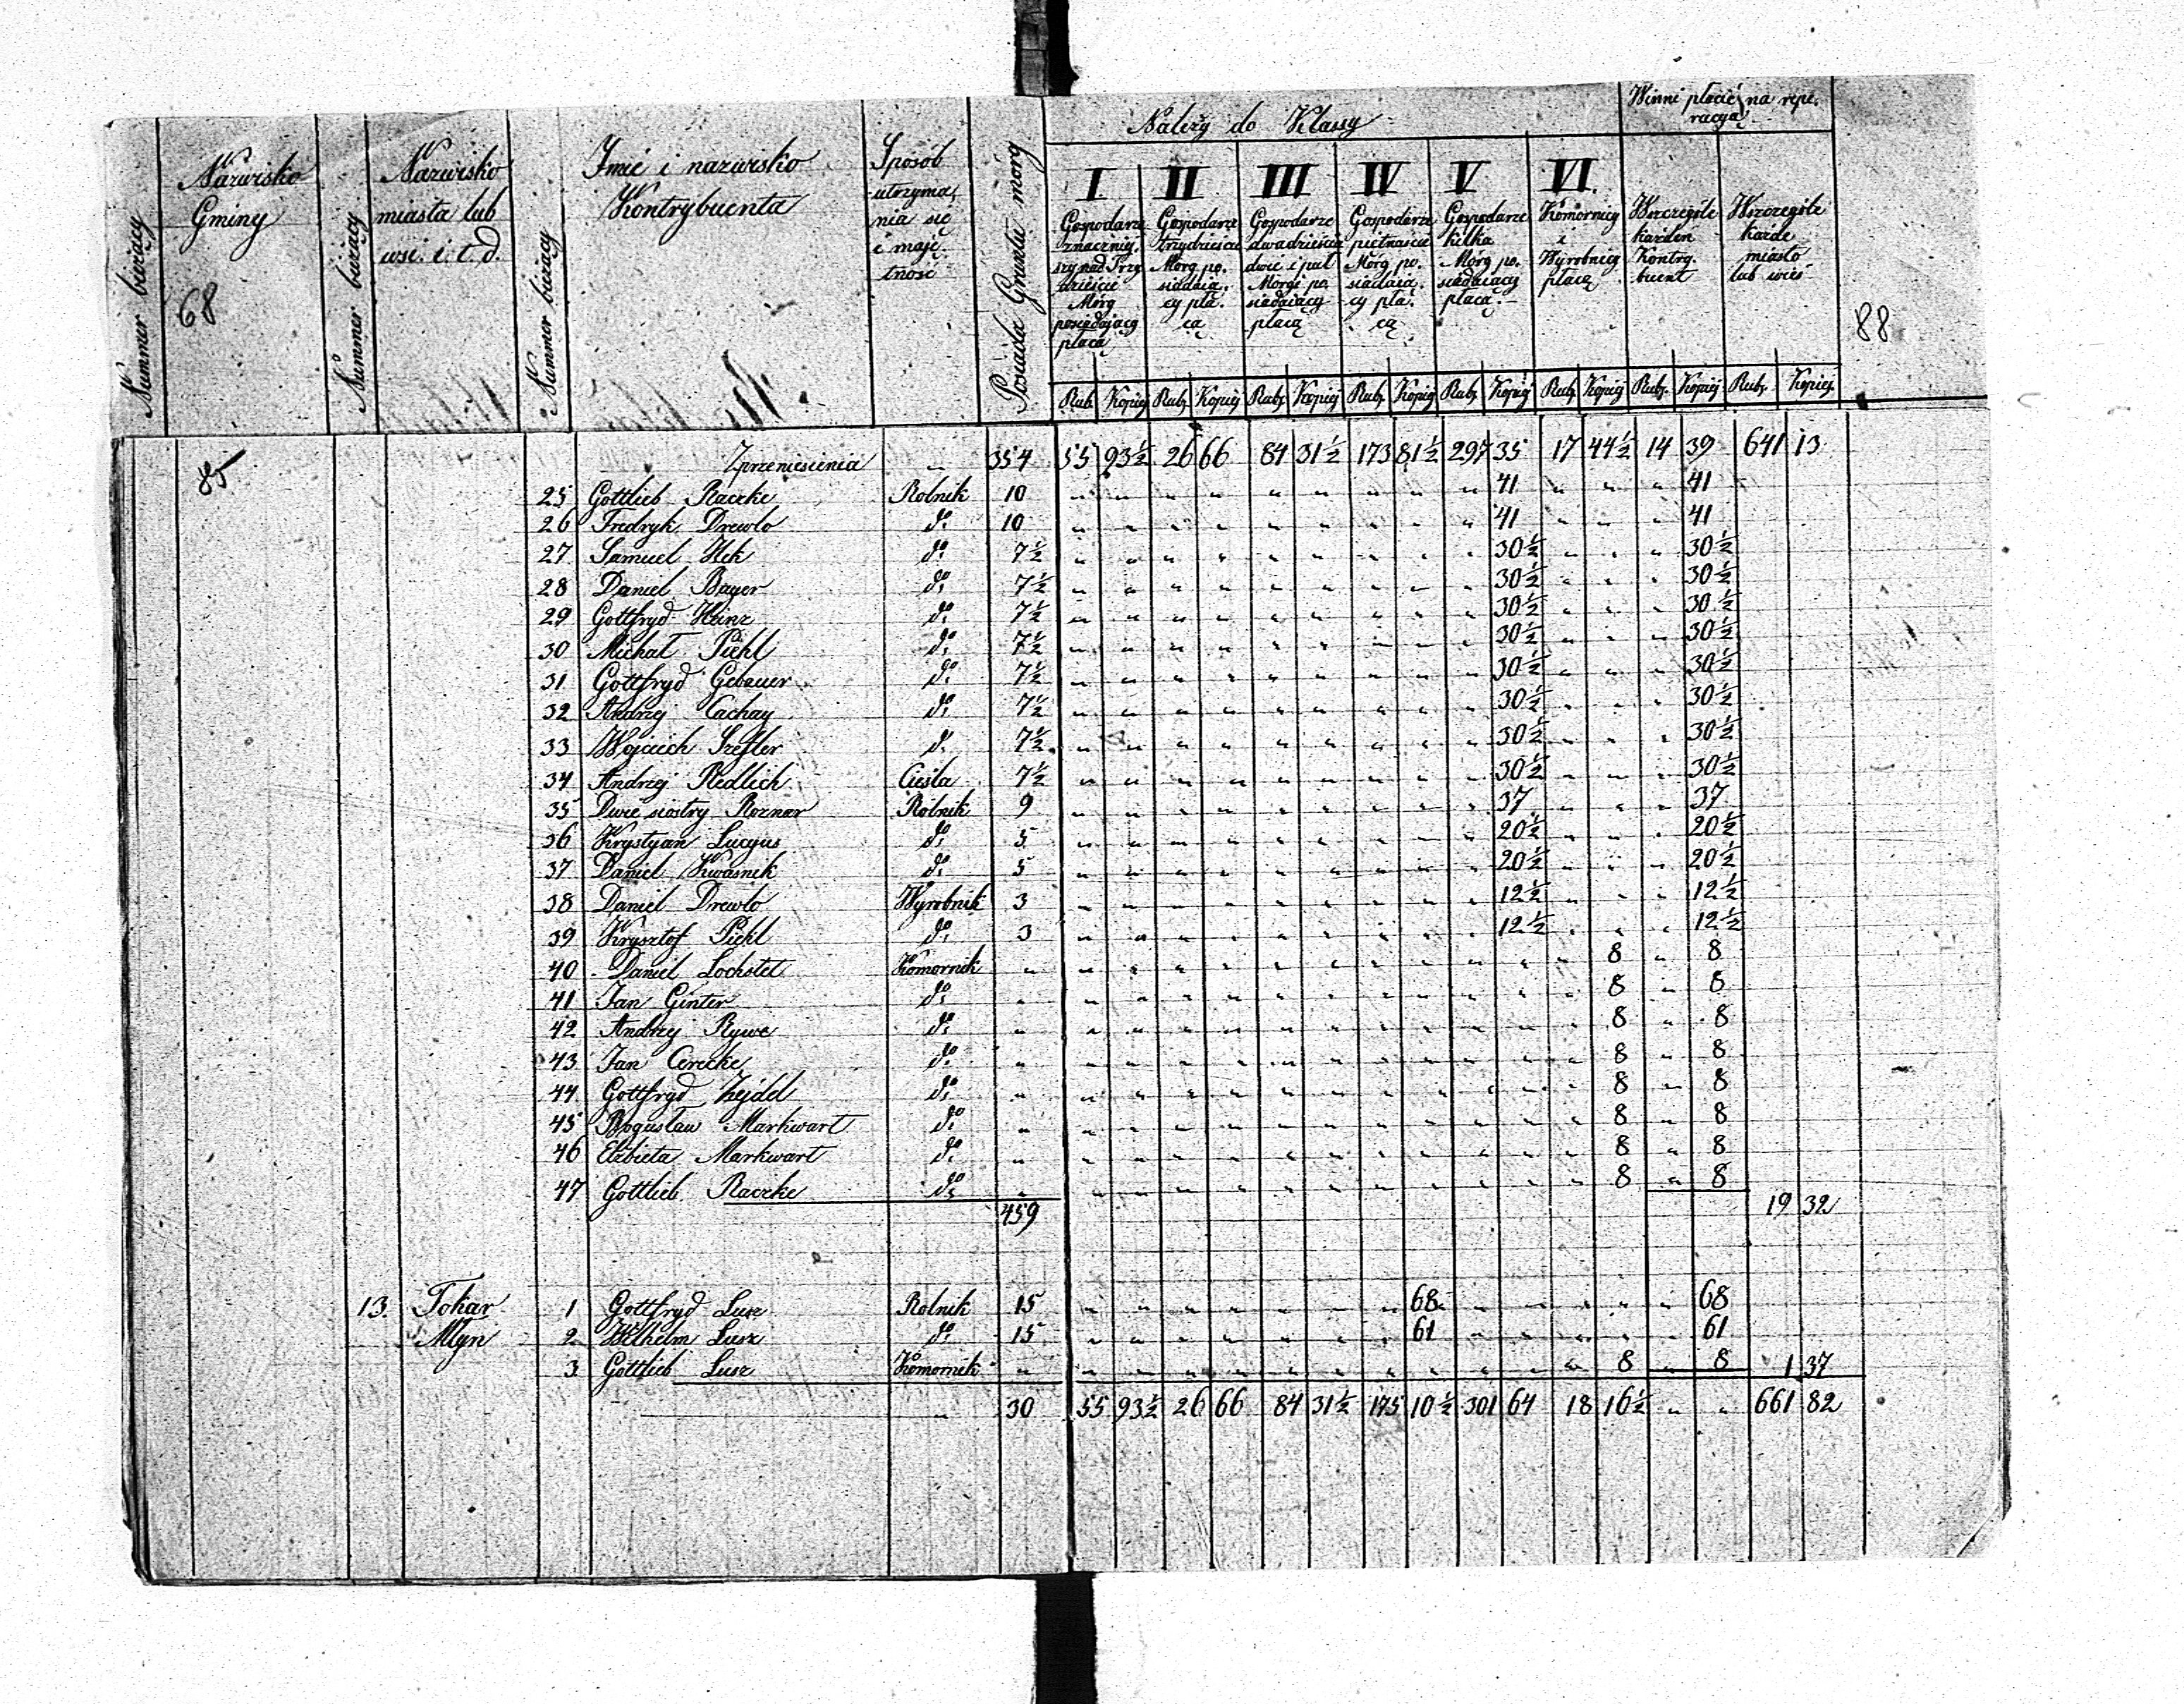 Należy do Klassy
Winni płacić na repe-
racyą
Nummer bieżący
Nazwisko
Gminy
68
Nummer bieżący
Nazwisko
miasta lub
wsi i. t. d.
Nummer bieżący
Imie i nazwisko
Kontrybuenta
Sposób
utrzyma-
nia się
i maję-
tność
Posiada Gruntu morg
I
Gospodarze
znaczniej-
szy nad Trzy
dzieście
Mórg
posiadający
płacą
II
Gospodarze
trzydzieście
Mórg po-
siadają-
cy pła-
cą
III
Gospodarze
dwadzieścia
dwie i puł
Morgi po
siadaiący
płacą
IV
Gospodarze
pietnaście
Mórg po-
siadaią-
cy pła-
cą
V
Gospodarze
kilka
Morg po-
siadaiący
płacą
VI.
Komornicy
i
Wyrobnicy
płacą
Wszczególe
każden
Kontry-
buent
Wszczególe
każde
miasto
lub wieś
88
Rub. Kopiej Rub. Kopiej Rub. Kopiej Rub. Kopiej Rub. Kopiej Rub. Kopiej Rub. Kopiej Rub. Kopiej
85
Zprzeniesienia " 354 55 93½ 26 66 84 31½ 173 81½ 297 35 17 44½ 14 39 641 13
25 Gottlieb Raczke Rolnik 10 41 41
26 Fredryk Drewlo do 10 41 41
27 Samuel Hek do 7½ 30½ 30½
28 Daniel Bayer do 7½ 30½ 30½
29 Gottfryd Heinz do 7½ 30½ 30½
30 Michał Piehl do 7½ 30½ 30½
31 Gottfryd Gebauer do 7½ 30½ 30½
32 Andrzej Cachay do 7½ 30½ 30½
33 Wojciech Szefler do 7½ 30½ 30½
34 Andrzej Redlich Cieśla 7½ 30½ 30½
35 Dwie siostry Roznar Rolnik 9 37 37
36 Krystyan Lucyus do 5 20½ 20½
37 Daniel Kwasnik do 5 20½ 20½
38 Daniel Drewlo Wyrobnik 3 12½ 12½
39 Krysztof Piehl do 3 12½ 12½
40 Daniel Lochstet Komornik " 8 8
41 Jan Ginter do " 8 8
42 Andrzej Rywe do " 8 8
43 Jan Cerecke do " 8 8
44 Gottfryd Zejdel do " 8 8
45 Bogusław Markwart do " 8 8
46 Elżbieta Markwart do " 8 8
47 Gottlieb Raczke do " 8 8
459 19 32
13. Tokar 1 Gottfryd Lusz Rolnik 15 68 68
Młyn 2 Wilhelm Lusz do 15 61 61
3 Gottlieb Lusz Komornik " 8 8 1 37
" 30 55 93½ 26 66 84 31½ 175 10½ 301 64 18 16½ " " 661 82